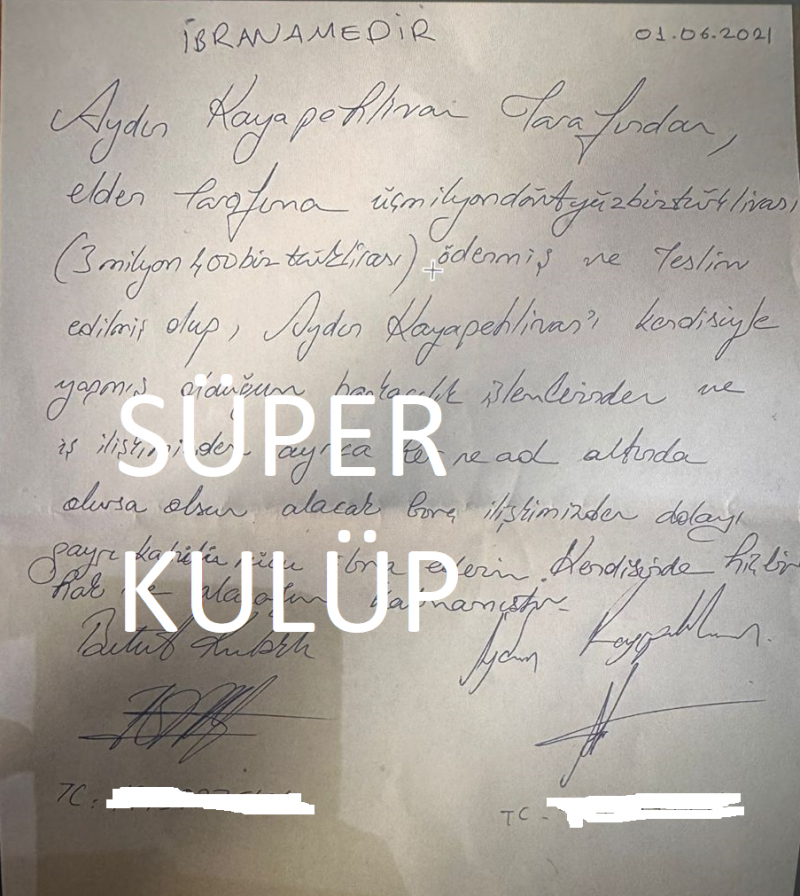 İBRANAMEDİR 01.06.2021
Aydın Kayapehlivan Tarafından,
elden tarafıma üçmilyondörtyüzbintürklirası
(3 milyon 400 bin türklirası) ödenmiş ve Teslim
edilmiş olup, Aydın Kayapehlivan'ı kendisiyle
yapmış olduğum bankacılık işlemlerinden ve
iş ilişkimizden ayrıca her ne ad altında
olursa olsun alacak borç ilişkimizden dolayı
gayri kabili rücu ibra ederim. Kendisinde hiçbir
hak ve alacağım kalmamıştır.
SÜPER
KULÜP
Aydın Kayapehlivan.
TC:
TC -